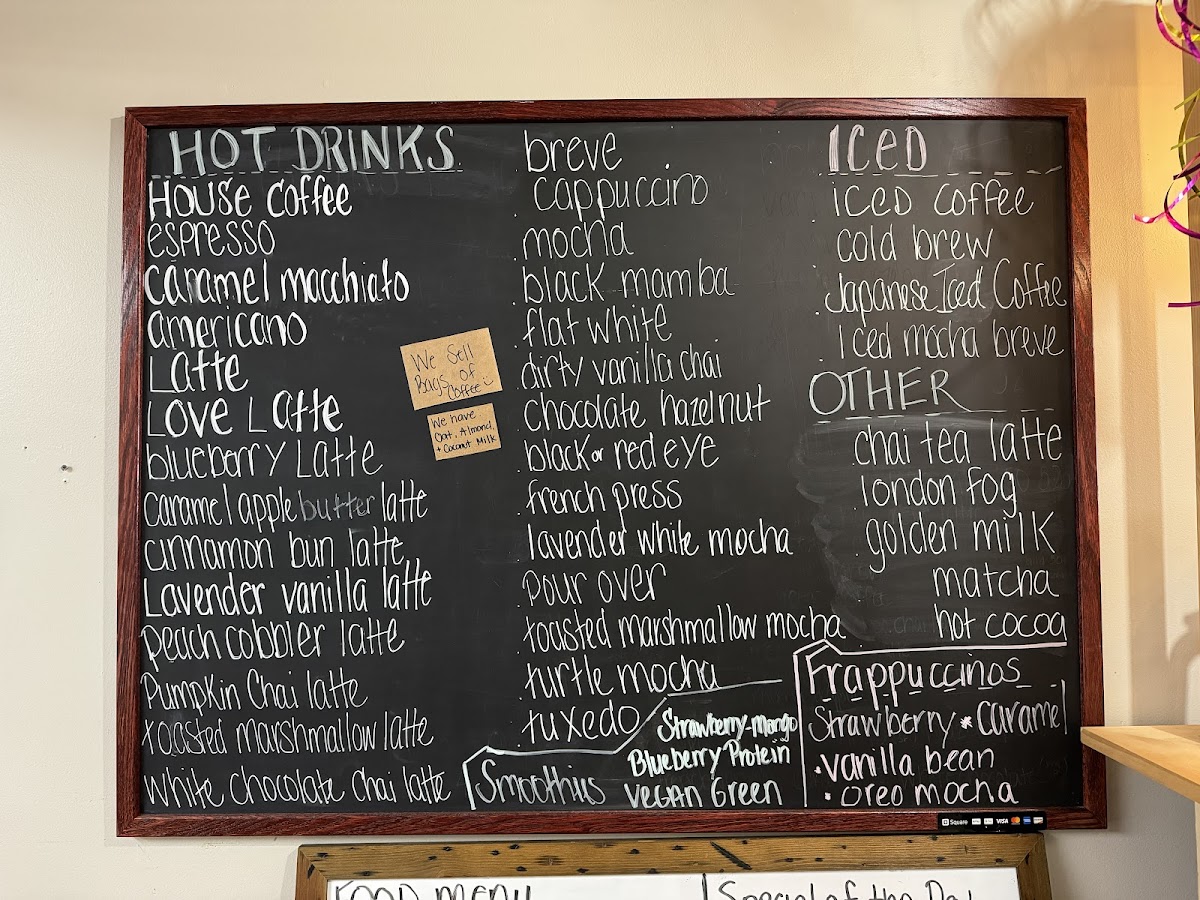 HOT DRINKS
HOUSE COFFEE
espresso
caramel macchiato
americano
LATTE
LOVE LATTE
blueberry LATTE
caramel apple butter latte
cinnamon bun latte
Lavender vanilla latte
peach cobbler latte
Pumpkin Chai latte
toasted marshmallow latte
white chocolate chai latte
We Sell
Bags of
Coffee
We have
Oat, Almond,
+ Coconut Milk
breve
cappuccino
mocha
black mamba
flat white
dirty vanilla chai
chocolate hazelnut
black or red eye
french press
lavender white mocha
pour over
toasted marshmallow mocha
turtle mocha
tuxedo
Smoothies
Strawberry-mango
Blueberry Protein
VEGAN Green
ICED
ICED COFFEE
cold brew
Japanese Iced Coffee
Iced mocha breve
OTHER
chai tea latte
london fog
golden milk
matcha
hot cocoa
Frappuccinos
Strawberry * caramel
• vanilla bean
• oreo mocha
Square VISA
FOOD MENU
Special of the Day